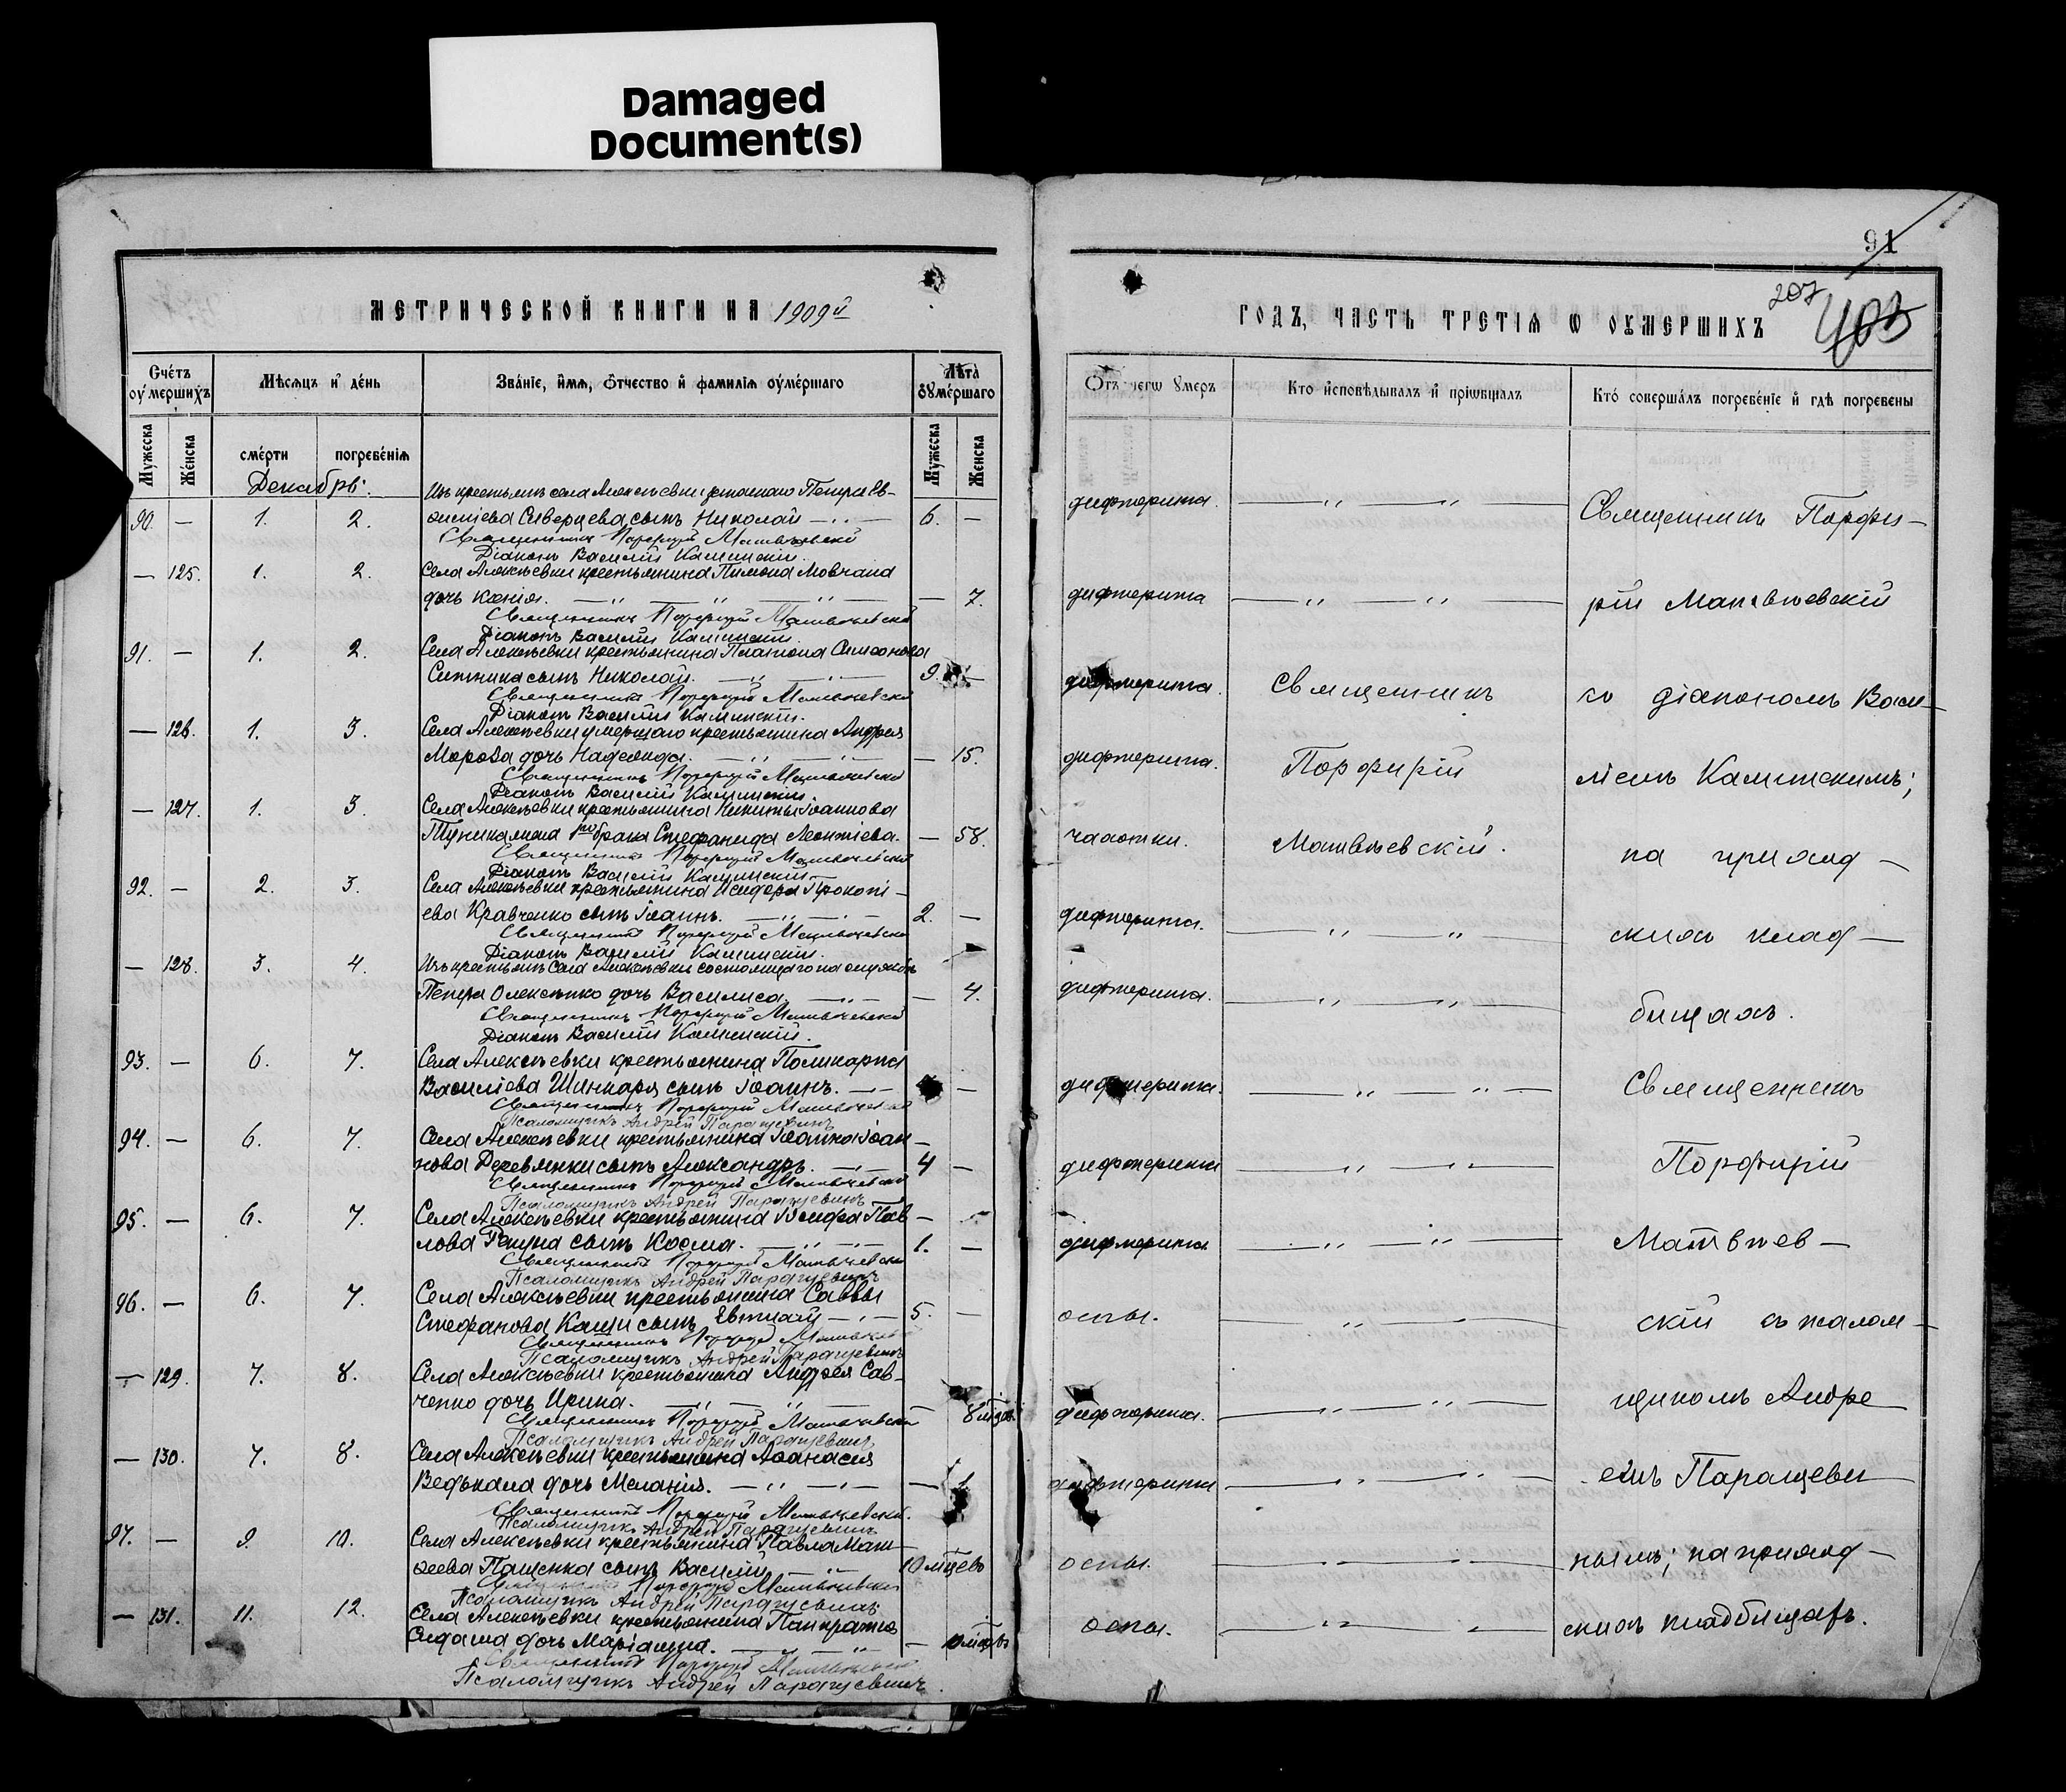 Damaged
Document(s)
МЕТРИЧЕСКОЙ КНИГИ НА 1909й
Счéтъ ᲂу҆мершихъ
Мѣсяцъ и҆ дéнь
Звáнїе, и҆́мѧ, ѻ҆́тчество и҆ фамилїѧ ᲂу҆мéршагѡ
Лѣта ᲂу҆мéршаго
Мужеска
Женска
смéрти
погребéнїѧ
Мужеска
Женска
Декабрь.
Изъ крестьянъ села Алексѣевки Петра Ев-
90. — 1. 2. сѣва Сиверцева сынъ Николай — 6. —
Священникъ Порфирій Матвѣевскій
Діаконъ Василій Калинскій.
— 125. 1. 2. Села Алексѣевки крестьянина Пимона Мовчана
дочь Ксенія. — 7.
Священникъ Порфирій Матвѣевскій
Діаконъ Василій Калинскій.
91. — 1. 2. Села Алексѣевки крестьянина Платона Симеонова
Ситника сынъ Николай. 9. —
Священникъ Порфирій Матвѣевскій
Діаконъ Василій Калинскій.
— 126. 1. 3. Села Алексѣевки умершаго крестьянина Андрея
Мороза дочь Надежда. — 15.
Священникъ Порфирій Матвѣевскій
Діаконъ Василій Калинскій.
— 127. 1. 3. Села Алексѣевки крестьянина Никиты Іоаннова
брака Стефанида Леонтіева. — 58.
Священникъ Порфирій Матвѣевскій
Діаконъ Василій Калинскій
92. — 2. 3. Села Алексѣевки крестьянина Исидора Прокопі-
ева Кравченко сынъ Іоаннъ. 2. —
Священникъ Порфирій Матвѣевскій
Діаконъ Василій Калинскій.
— 128. 3. 4. Изъ крестьянъ села Алексѣевки состоящаго на
Петра Олексенко дочь Василиса. — 4.
Священникъ Порфирій Матвѣевскій
Діаконъ Василій Калинскій.
93. — 6. 7. Села Алексѣевки крестьянина Поликарпа
Василіева Шинкаря сынъ Іоаннъ. —
Священникъ Порфирій Матвѣевскій
Псаломщикъ Андрей Паращевинъ
94. — 6. 7. Села Алексѣевки крестьянина Іоанна Іоан-
нова Деревянки сынъ Александръ. 4 —
Священникъ Порфирій Матвѣевскій
Псаломщикъ Андрей Паращевинъ
95. — 6. 7. Села Алексѣевки крестьянина Іосифа Пав-
лова Рапуна сынъ Косма. 1. —
Священникъ Порфирій Матвѣевскій
Псаломщикъ Андрей Паращевинъ
96. — 6. 7. Села Алексѣевки крестьянина Саввы
Стефанова Кащи сынъ 5. —
Священникъ Порфирій Матвѣевскій
Псаломщикъ Андрей Паращевинъ
— 129. 7. 8. Села Алексѣевки крестьянина Андрея Сав-
ченко дочь Ирина. — 8 мѣсяц.
Священникъ Порфирій Матвѣевскій
Псаломщикъ Андрей Паращевинъ
— 130. 7. 8. Села Алексѣевки крестьянина Аѳанасія
Ведькала дочь Меланія. — 1
Священникъ Порфирій Матвѣевскій.
Псаломщикъ Андрей Паращевинъ
97. — 9. 10. Села Алексѣевки крестьянина Павла Мат-
ѳеева Пащенка сынъ Василій 10 мѣцевъ
Священникъ Порфирій Матвѣевскій
Псаломщикъ Андрей Паращевинъ
— 131. 11. 12. Села Алексѣевки крестьянина Панкратія
дочь Маріанна. —
Священникъ Порфирій Матвѣевскій
Псаломщикъ Андрей Паращевинъ.
91
207
403
ГОДЪ, ЧАСТЬ ТРЕТІѦ Ѡ ОУМЕРШИХЪ
Ѿ чегѡ ᲂу҆меръ
Кто и҆сповѣдывалъ и҆ прїѡбщалъ
Ктó совершáлъ погребéнїе и҆ гдѣ погребены
дифтерита.
дифтерита
дифтерита.
дифтерита.
чахотки.
дифтерита.
дифтерита.
дифтерита.
дифтерита
дифтерита
оспы.
дифтерита.
дифтерита
оспы.
оспы.
Священникъ
Порфирій
Матвѣевскій.
Священникъ Порфи-
рій Матвѣевскій
со діакономъ Васи-
ліемъ Калинскимъ;
на приход-
скихъ клад-
бищахъ.
Священникъ
Порфирій
Матвѣев-
скій съ псалом-
щикомъ Андре
емъ Паращеви
нымъ; на приход-
скихъ кладбищахъ.